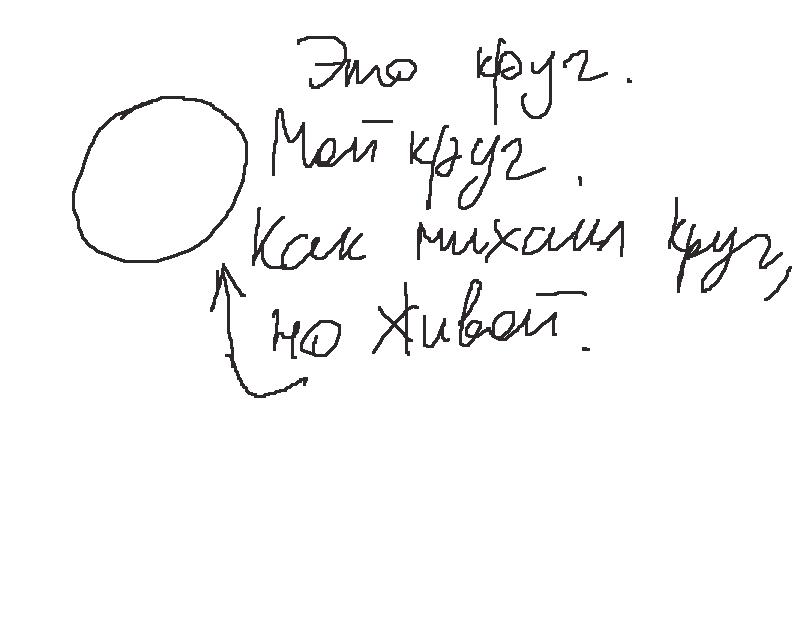 Это круг.
Мой круг.
Как михаил круг,
но живой.